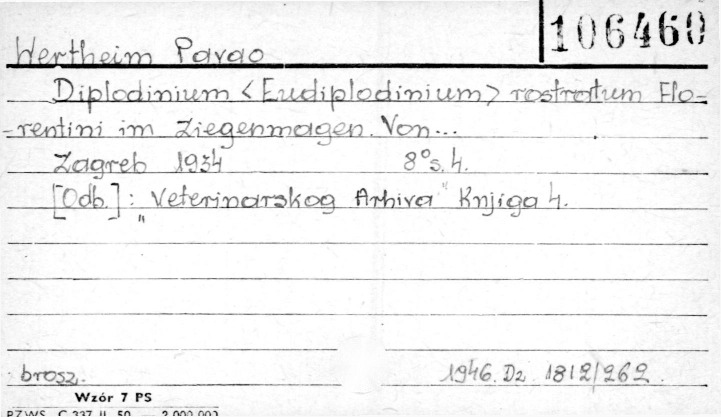 106460
Wertheim Pavao
Diplodinium <Eudiplodinium> rostratum Flo-
-rentini im Ziegenmagen. Von...
Zagreb 1934 8° s. 4.
[Odb.]: "Veterinarskog Arhiva" Knjiga 4.
brosz. 1946. Dz. 1812/262.
Wzór 7 PS
PZWS C 337 II. 50 — 2.000.000